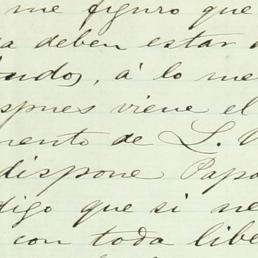 me figuro que
a deben estar
ados, á lo me
spues viene el
mento de L. V
dispone Papa
digo que si ne
con toda libe